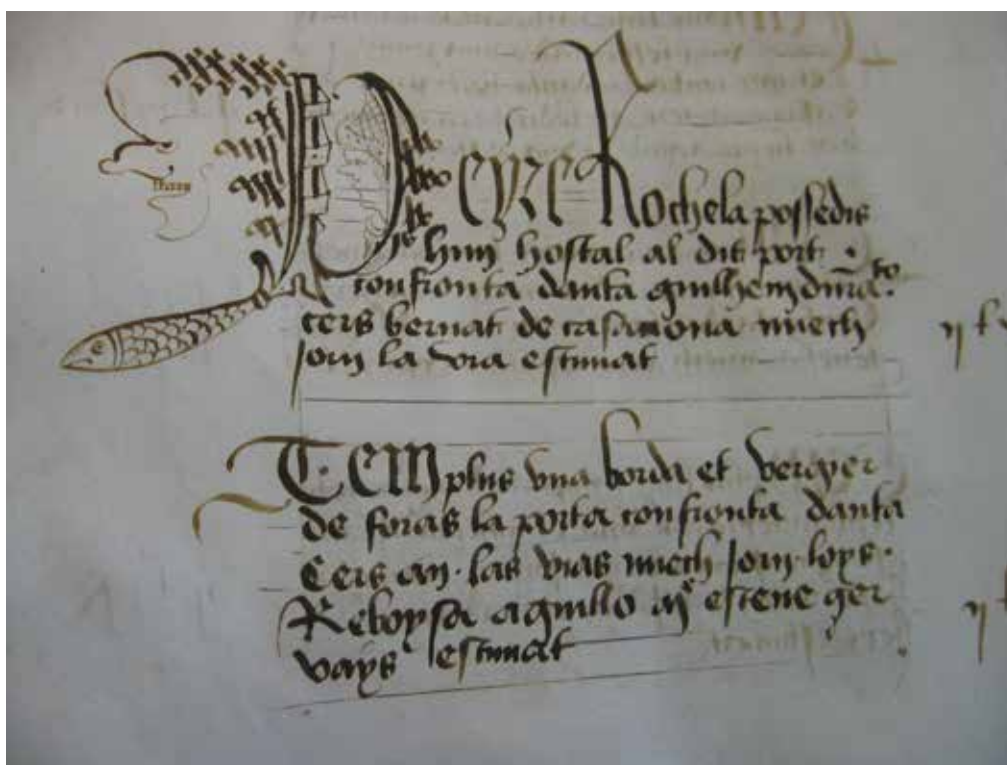 Peyre Rochela possedis
hun hostal al dit port
confronta danta guilhem
cers bernat de casamona miech
jorn la via estimat
Item plus una borda et vergier
de foras la porta confronta danta
cers an las vias miech jorn loys
Reboysa aguillo estene ger
vays estimat